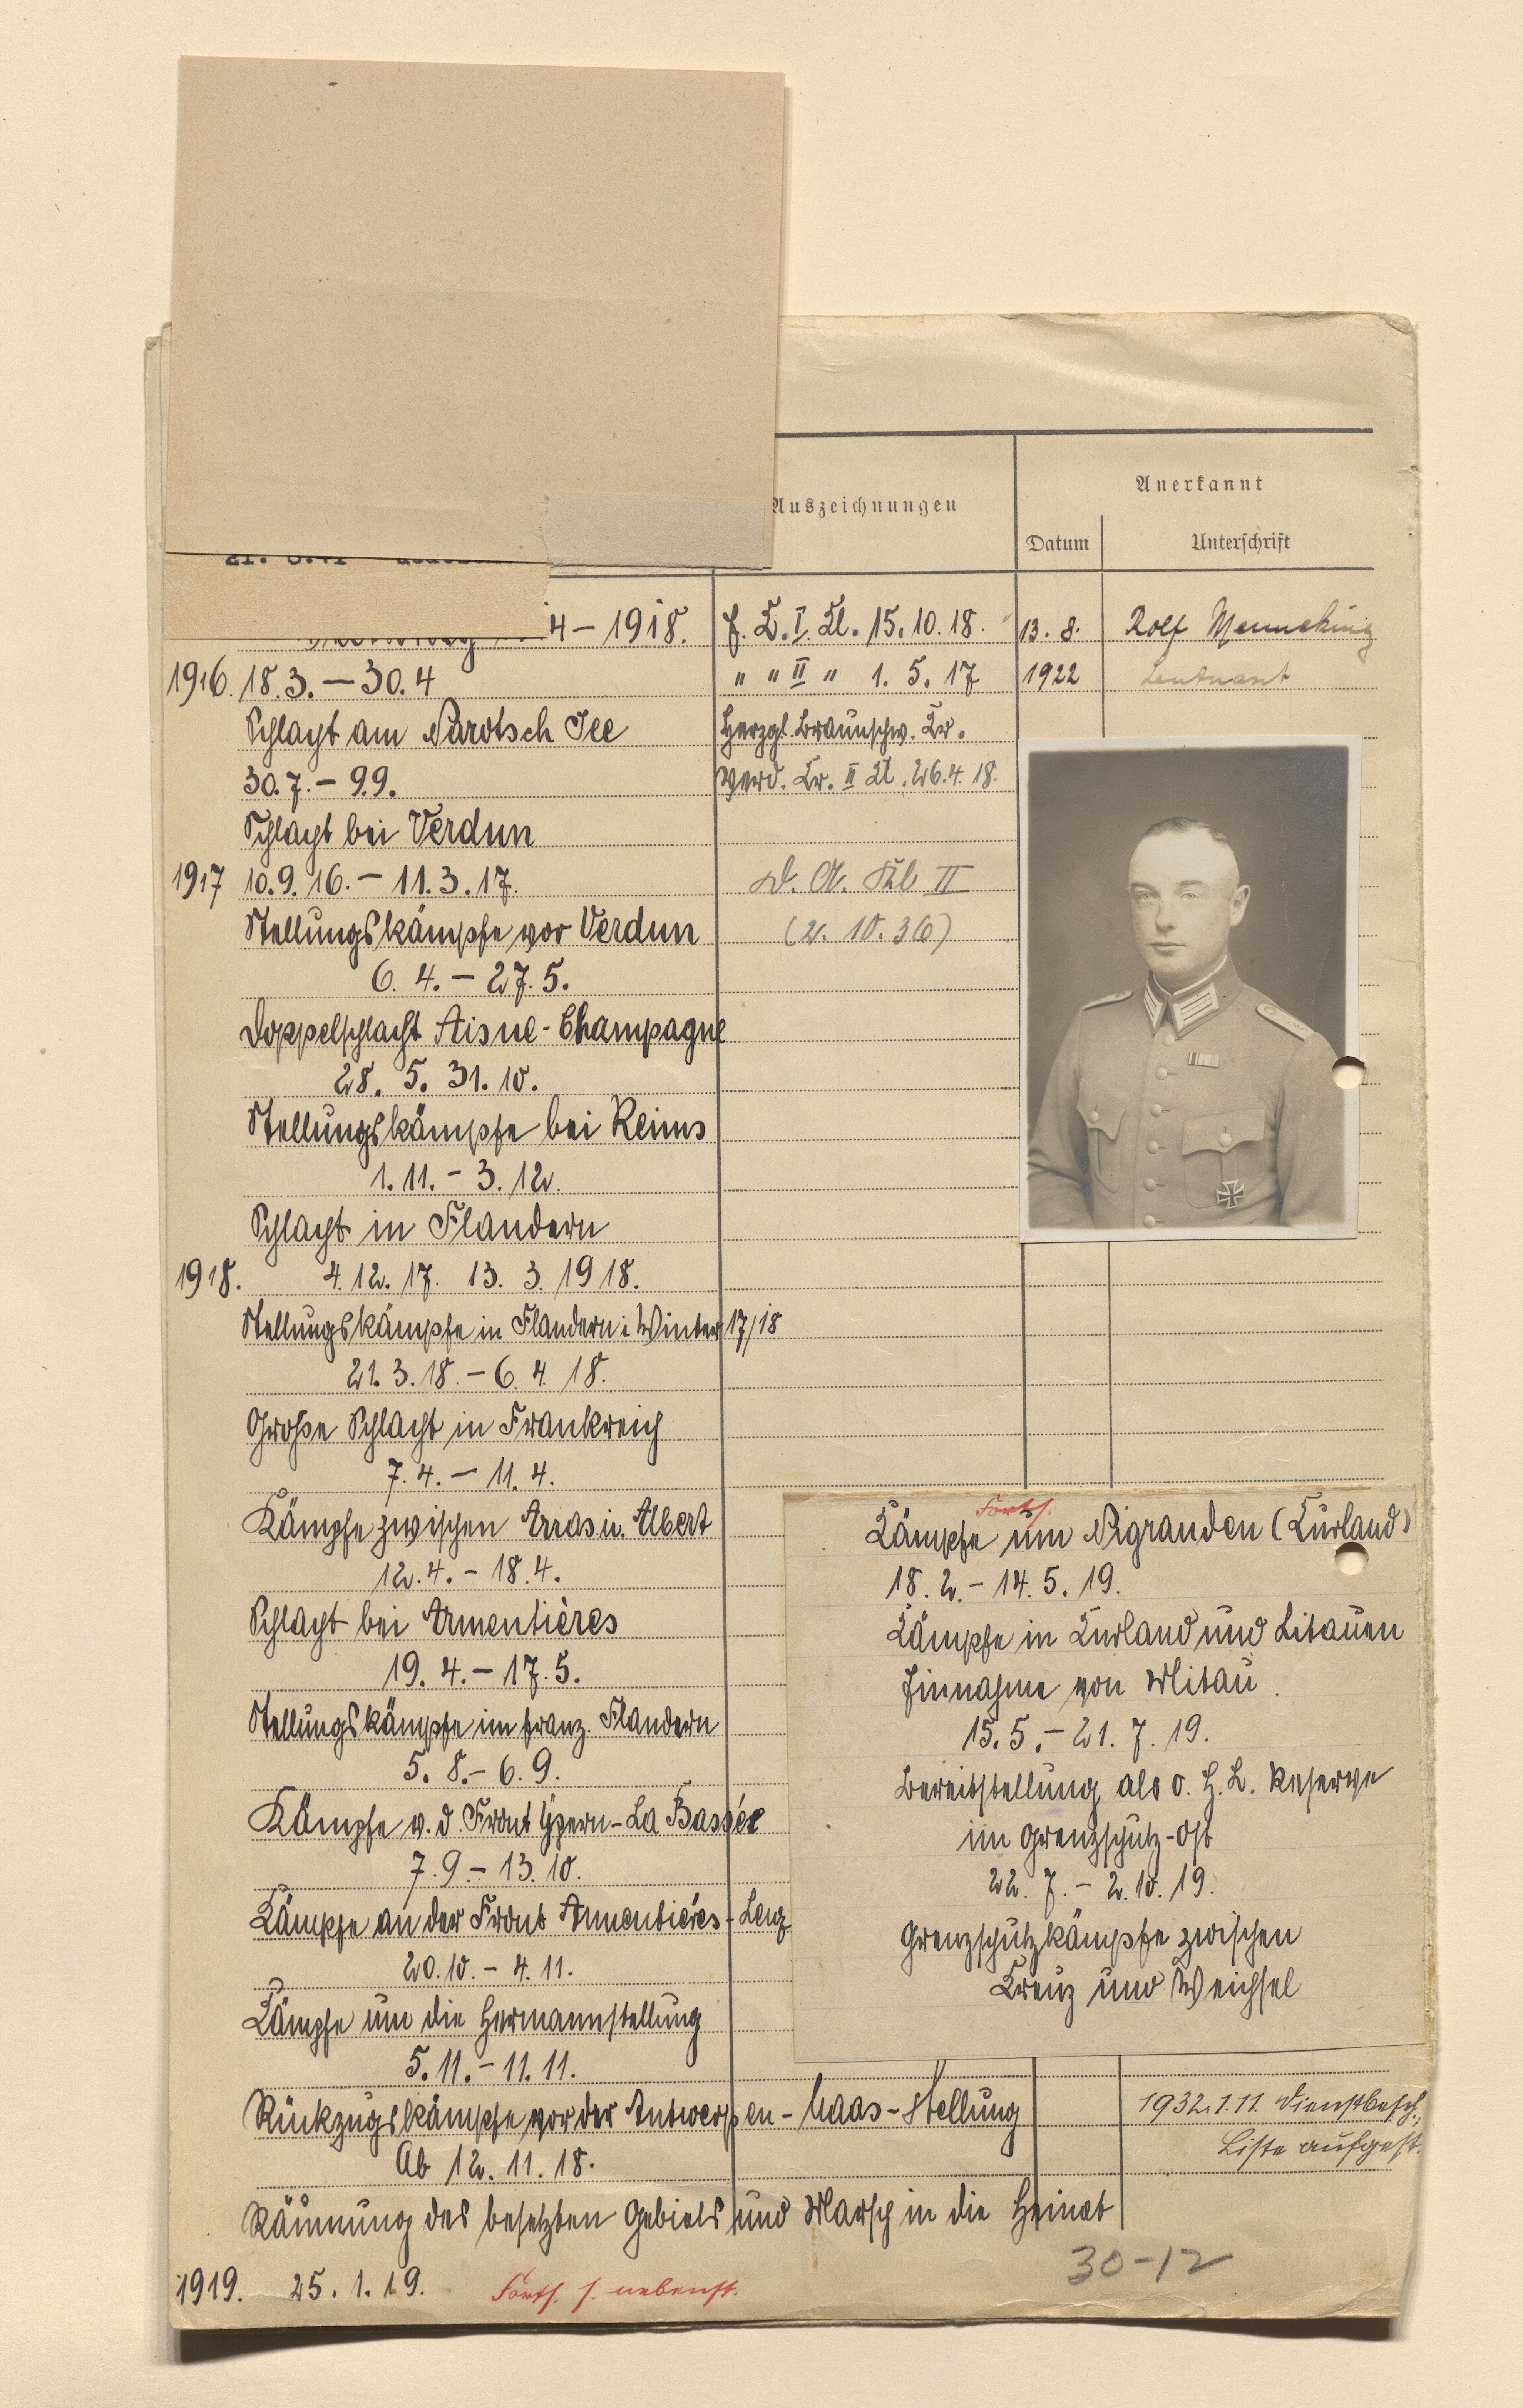 Auszeichnungen
Anerkannt
Datum
Unterschrift
4 – 1918.
1916. 18.3. – 30.4
Schlacht am Narotsch See
30.7. – 9.9.
Schlacht bei Verdun
1917 10.9.16. – 11.3.17.
Stellungskämpfe vor Verdun
6. 4. – 27. 5.
Doppelschlacht Aisne-Champagne
28. 5. 31. 10.
Stellungskämpfe bei Reims
1. 11. – 3. 12.
Schlacht in Flandern
1918. 4. 12. 17. 13. 3. 1918.
Stellungskämpfe in Flandern i Winter 17/18
21. 3. 18. – 6. 4. 18.
Große Schlacht in Frankreich
7. 4. – 11. 4.
Kämpfe zwischen Arras u. Albert
12. 4. – 18. 4.
Schlacht bei Armentières
19. 4. – 17. 5.
Stellungskämpfe im franz. Flandern
5. 8. – 6. 9.
Kämpfe a. d. Front Ypern – La Bassée
7. 9. – 13. 10.
Kämpfe an der Front Armentiérés – Lenz
20. 10. – 4. 11.
Kämpfe um die Hermannstellung
5. 11. – 11. 11.
Rückzugskämpfe vor der Antwerpen – Maas – Stellung
Ab 12. 11. 18.
Räumung des besetzten Gebiets und Marsch in die Heimat
1919. 25. 1. 19. Forts. s. nebenst.
E. K. I. Kl. 15. 10. 18.
" " II " 1. 5. 17
Herzgl. Braunschw. Kr.
Verd. Kr. II Kl. 26. 4. 18.
D. A. Kl. II
(2. 10. 36)
13. 8.
1922
Rolf Menneking
Leutnant
Forts.
Kämpfe um Nigranden (Kurland)
18. 2. – 14. 5. 19.
Kämpfe in Kurland und Litauen
Einnahme von Mitau.
15. 5. – 21. 7. 19.
Bereitstellung als O. H. L. Reserve
im Grenzschutz-Ost
22. 7. – 2. 10. 19.
Grenzschutzkämpfe zwischen
Kreuz und Weichsel
1932. 1. 11. Dienstbesch.,
Liste aufgest.
30-12